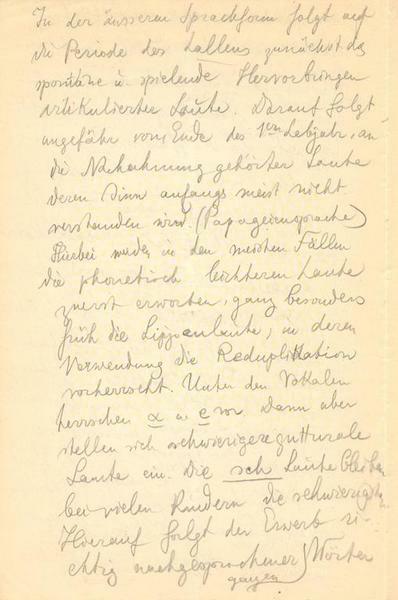 In der äusseren Sprachform folgt auf
die Periode des Lallens zunächst das
spontane u. spielende Hervorbringen
artikulierter Laute. Darauf folgt
ungefähr vom Ende des 1ten Lebjahr. an
die Nachahmung gehörter Laute
deren Sinn anfangs meist nicht
verstanden wird. (Papageiensprache)
Hierbei werden in den meisten Fällen
die phonetisch leichteren Laute
zuerst erworben, ganz besonders
früh die Lippenlaute, in deren
Verwendung die Reduplikation
vorherrscht. Unter den Vokalen
herrschen a u. e vor. Dann aber
stellen sich schwierigere gutturale
Laute ein. Die sch Laute bleiben
bei vielen Kindern die schwierigsten
Hierauf folgt der Erwerb ri-
chtig nachgesprochener Wörter
ganzen